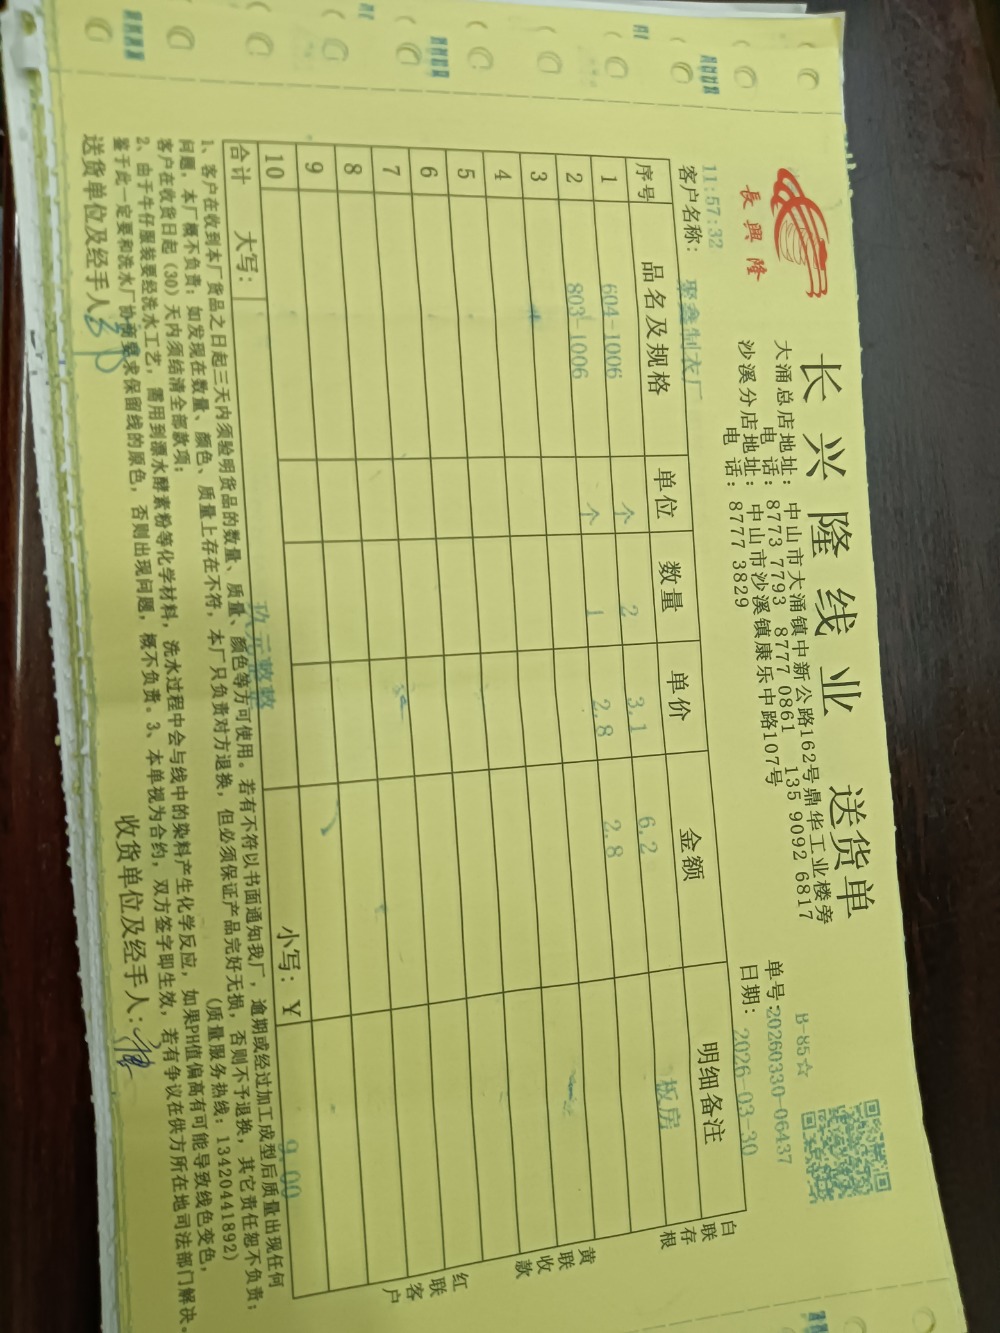 長興隆
长兴隆线业 送货单
大涌总店地址：中山市大涌镇中新公路162号鼎华工业楼旁
电话：8773 7793 8777 0861 135 9092 6817
沙溪分店地址：中山市沙溪镇康乐中路107号
电话：8777 3829
B-85☆
单号：20260330-06437
日期：2026-03-30
11:57:32
客户名称：聚鑫制衣厂
序号 品名及规格 单位 数量 单价 金额 明细备注
1 604-1006 个 2 3.1 6.2 板房
2 803-1006 个 1 2.8 2.8
3
4
5
6
7
8
9
10
合计 大写：玖元整 小写：￥9.00
白联存根
黄联收款
红联客户
1、客户在收到本厂货品之日起三天内须验明货品的数量、质量、颜色等方可使用。若有不符以书面通知我厂，逾期或经过加工成型后质量出现任何
问题，本厂概不负责；如发现在数量、颜色、质量上存在不符，本厂只负责对方退换，但必须保证产品完好无损，否则不予退换，其它责任恕不负责；
客户在收货日起（30）天内须结清全部款项； （质量服务热线：13420441892）
2、由于牛仔服装要经洗水工艺，需用到漂水酵素粉等化学材料，洗水过程中会与线中的染料产生化学反应，如果PH值偏高有可能导致线色变色，
鉴于此一定要和洗水厂协商要求保留线的原色，否则出现问题，概不负责。3、本单视为合约，双方签字即生效，若有争议在供方所在地司法部门解决。
送货单位及经手人： 收货单位及经手人：